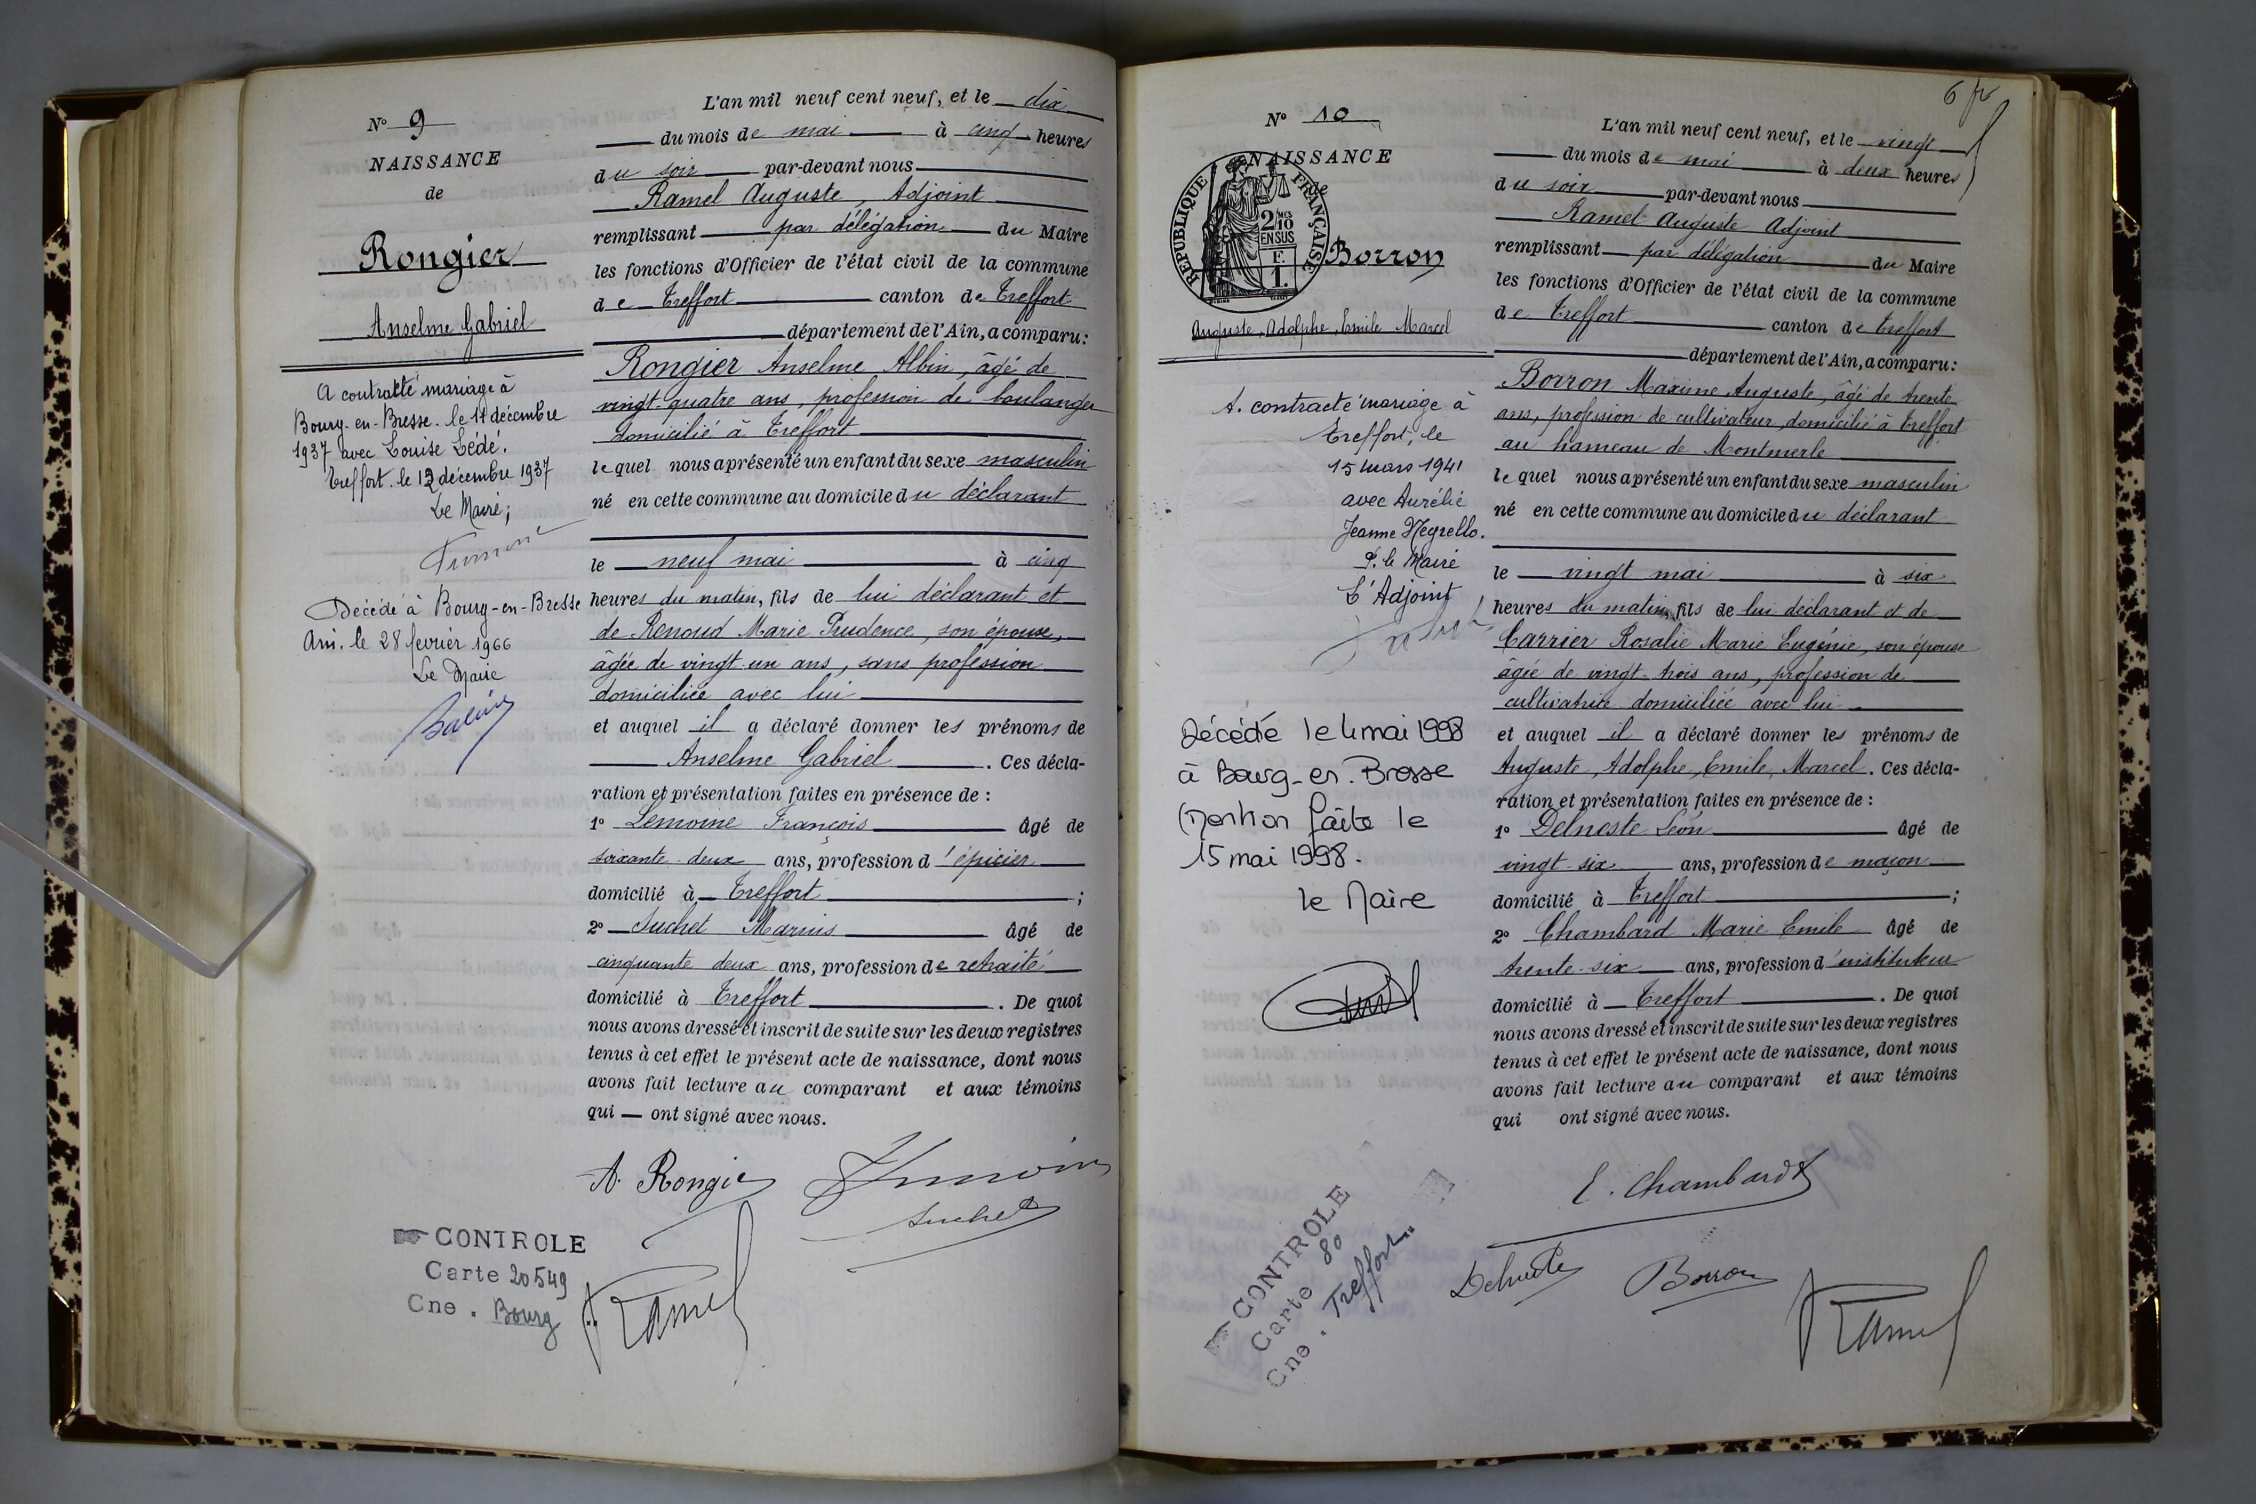 N° 9
NAISSANCE
de
Rongier
Anselme Gabriel
A contracté mariage à
Bourg-en-Bresse le 11 décembre
1937 avec Louise Lédé.
Treffort le 13 décembre 1937
Le Maire;
Décédé à Bourg-en-Bresse
Ain. le 28 février 1966
Le Maire
L'an mil neuf cent neuf, et le dix
du mois de mai à cinq heures
du soir par-devant nous
Ramel Auguste, Adjoint
remplissant par délégation du Maire
les fonctions d'Officier de l'état civil de la commune
de Treffort canton de Treffort
département de l'Ain, a comparu:
Rongier Anselme Albin, âgé de
vingt-quatre ans, profession de boulanger
domicilié à Treffort
lequel nous a présenté un enfant du sexe masculin
né en cette commune au domicile du déclarant
le neuf mai à cinq
heures du matin, fils de lui déclarant et
de Renoud Marie Prudence, son épouse,
âgée de vingt-un ans, sans profession
domiciliée avec lui
et auquel il a déclaré donner les prénoms de
Anselme Gabriel. Ces décla-
ration et présentation faites en présence de :
1° Lemoine François âgé de
soixante-deux ans, profession d'épicier
domicilié à Treffort ;
2° Suchet Marius âgé de
cinquante deux ans, profession de retraité
domicilié à Treffort. De quoi
nous avons dressé et inscrit de suite sur les deux registres
tenus à cet effet le présent acte de naissance, dont nous
avons fait lecture au comparant et aux témoins
qui — ont signé avec nous.
A. Rongier
Suchet
Ramel
CONTROLE
Carte 20549
Cne. Bourg
6
N° 10
NAISSANCE
RÉPUBLIQUE FRANÇAISE
2/10
EN SUS
F.
1.
Borron
Auguste, Adolphe, Emile Marcel
A. contracté mariage à
Treffort, le
15 mars 1941
avec Aurélie
Jeanne Negrello.
P. le Maire
L'Adjoint
Décédé le 4 mai 1998
à Bourg-en-Bresse
Mention faite le
15 mai 1998.
le Maire
L'an mil neuf cent neuf, et le vingt
du mois de mai à deux heures
du soir par-devant nous
Ramel Auguste Adjoint
remplissant par délégation du Maire
les fonctions d'Officier de l'état civil de la commune
de Treffort canton de Treffort
département de l'Ain, a comparu:
Borron Maxime Auguste, âgé de trente
ans, profession de cultivateur, domicilié à Treffort
au hameau de Montmerle
lequel nous a présenté un enfant du sexe masculin
né en cette commune au domicile du déclarant
le vingt mai à six
heures du matin, fils de lui déclarant et de
Carrier Rosalie Marie Eugénie, son épouse
âgée de vingt-trois ans, profession de
cultivatrice domiciliée avec lui
et auquel il a déclaré donner les prénoms de
Auguste, Adolphe, Emile, Marcel. Ces décla-
ration et présentation faites en présence de :
1° Delneste Léon âgé de
vingt-six ans, profession de maçon
domicilié à Treffort ;
2° Chambard Marie Emile âgé de
trente-six ans, profession d'instituteur
domicilié à Treffort. De quoi
nous avons dressé et inscrit de suite sur les deux registres
tenus à cet effet le présent acte de naissance, dont nous
avons fait lecture au comparant et aux témoins
qui ont signé avec nous.
E. Chambard
Delneste
Borron
Ramel
CONTROLE
Carte 80
Cne. Treffort